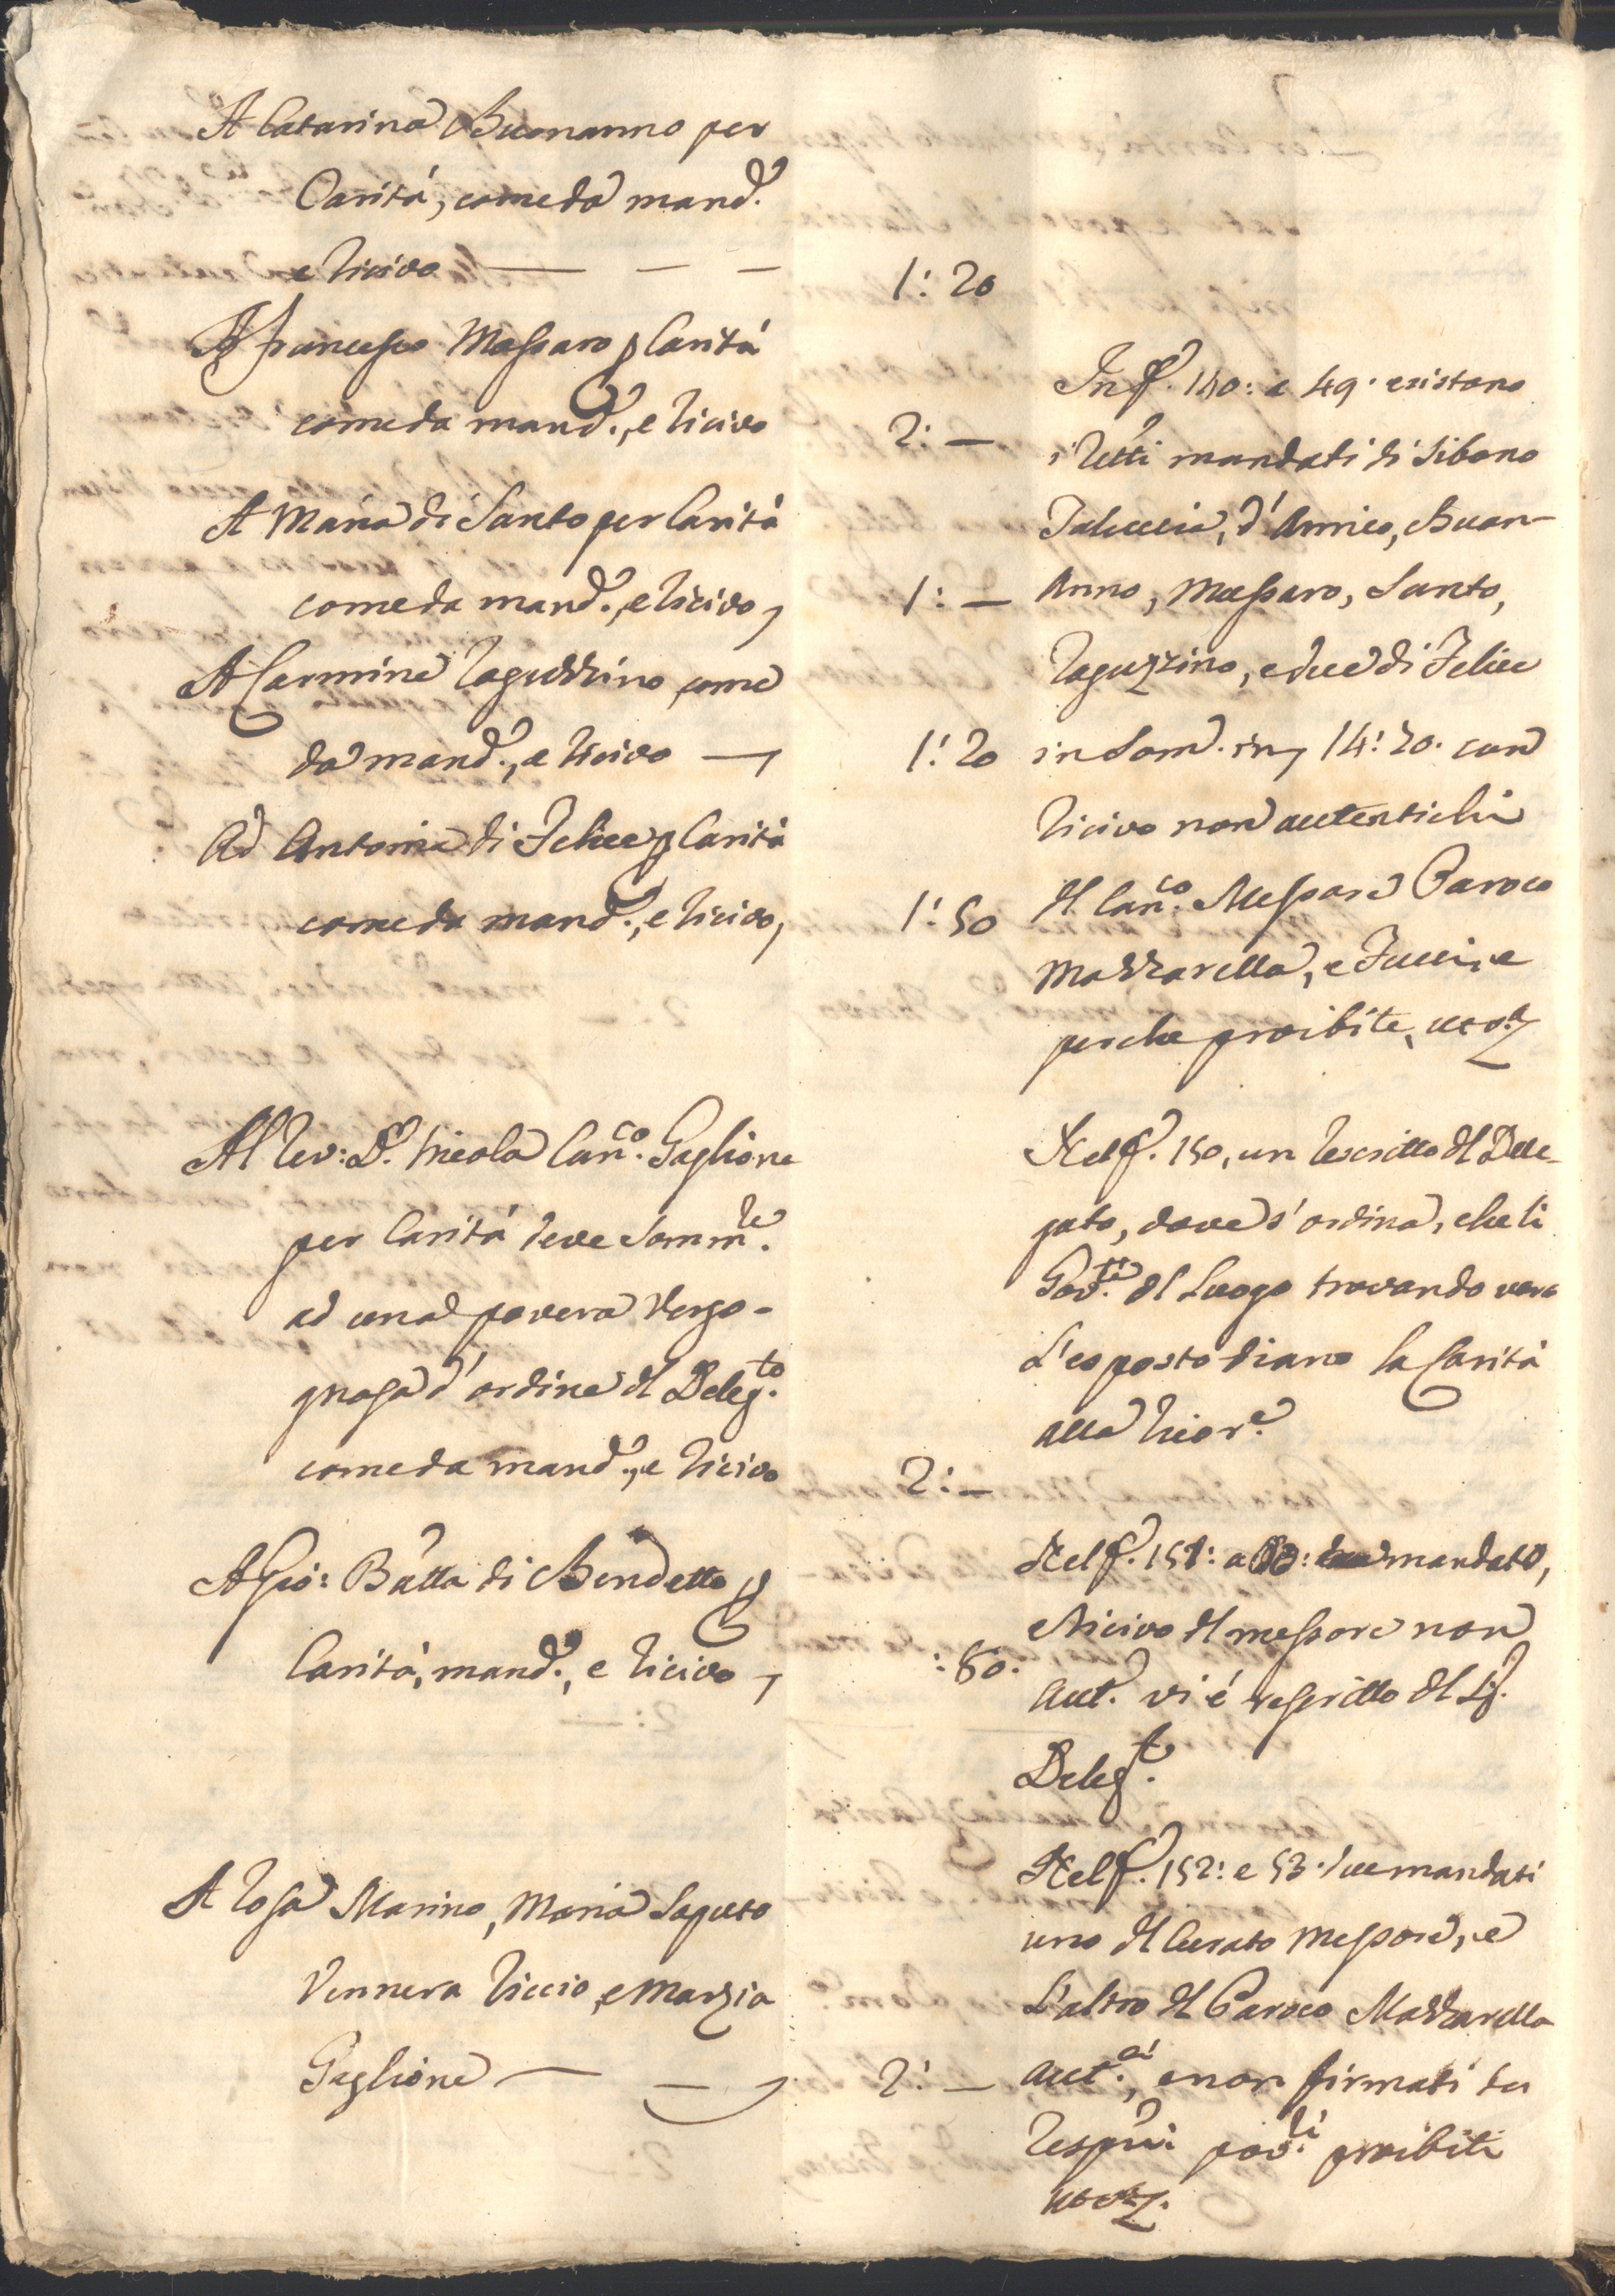 A Catarina Buonanno per
Carità, come da mand.
e ricivo — — — 1: 20
A Francesco Massaro p Carità
come da mand., e ricivo 2: —
A Maria di Santo per Carità
come da mand., e ricivo, 1: —
A Carmine Raguzzino come
da mand., e ricivo — 1: 20
Ad Antonia di Felice p Carità
come da mand., e ricivo, 1: 50
Al Rev: D. Nicola Can.co Gaglione
per Carità deve somm.re
ad una povera vergo-
gnosa d'ordine dl Deleg.to
come da mand., e ricivo 2: —
A Gio: Batta di Bendetto p
Carità, mand., e ricivo, : 80.
A Rosa Marino, Maria Saputo
Vennera Riccio, e Marzia
Gaglione — — 2: —
In f. 140: e 49. esistono
i detti mandati di
d'Amico, Buon-
Anno, Massaro, Santo,
Raguzzino, e due di Felice
in Som. in 14: 20. con
ricivo non autentichi
dl Can.co Messore Paroco
Mazzarella, e Fucci, e
perche proibite,
Nel f. 150, un rescritto dl Dele-
gato, dove s'ordina, che li
Gov.ri dl Luogo trovando vero
L'esposto diano la Carità
alla
Nel f. 151: a mandato,
e ricivo dl messore non
Aut. vi è rescritto dl Sig.
Deleg.t
Nel f. 152: e 53. due mandati
uno dl Curato Messore, e
L'altro dl Paroco Mazzarella
Aut.ci, e non firmati da
proibiti